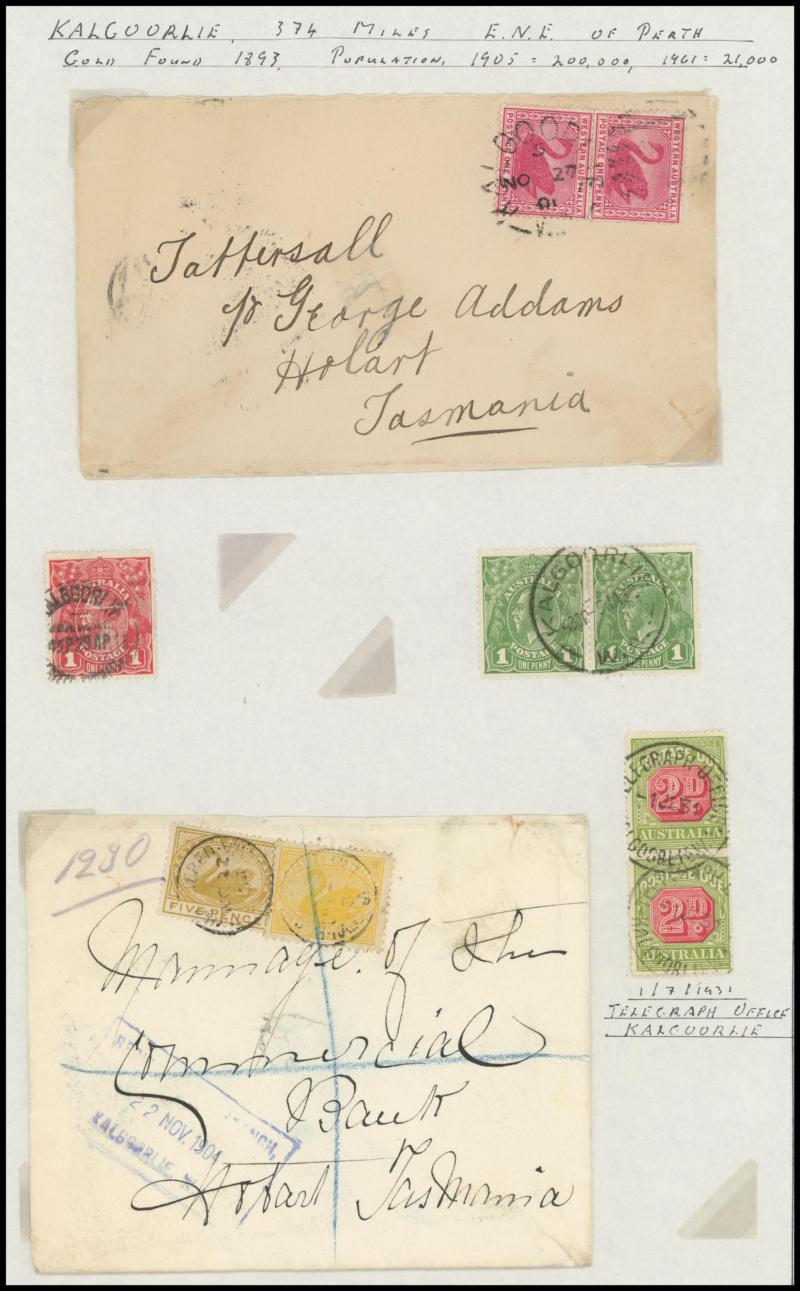 KALGOORLIE, 374 MILES E.N.E. OF PERTH
GOLD FOUND 1893, POPULATION, 1905 = 200,000, 1961 = 21,000
WESTERN AUSTRALIA
POSTAGE ONE PENNY
WESTERN AUSTRALIA
POSTAGE ONE PENNY
KALGOOR
S
NO 27
01
W
Tattersall
c/o George Addams
Hobart
Tasmania
AUSTRALIA
1 POSTAGE 1
ONE PENNY
ALGOORLI
AUSTRALIA
POSTAGE 1
ONE PENNY
AUSTRALIA
POSTAGE 1
ONE PENNY
KALGOORLIE
W.A.
POSTAGE DUE
2D
AUSTRALIA
TELEGRAPH OFFICE
1 JL 31
POSTAGE DUE
2D
AUSTRALIA
1/7/1931
TELEGRAPH OFFICE
KALGOORLIE
1230
FIVE PENCE
Mannage. of the
Commercial
Bank
Hobart Tasmania
22 NOV. 1904
KALGOORLIE